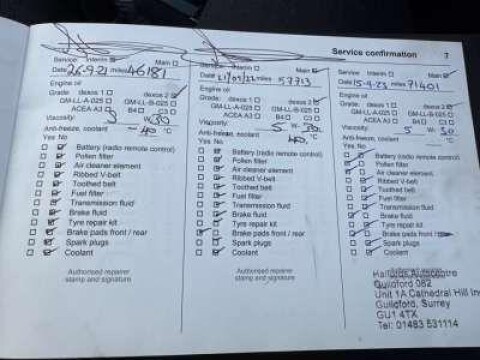 Service confirmation 7
Service: Interim Main
Date 26-9-21 miles 46181
Engine oil
Grade: dexos 1 dexos 2
GM-LL-A-025 GM-LL-B-025
ACEA A3 B4 C3
Viscosity W
Anti-freeze, coolant -40 °C
Yes No
Battery (radio remote control)
Pollen filter
Air cleaner element
Ribbed V-belt
Toothed belt
Fuel filter
Transmission fluid
Brake fluid
Tyre repair kit
Brake pads front / rear
Spark plugs
Coolant
Authorised repairer
stamp and signature
Service: Interim Main
Date miles 57713
Engine oil
Grade: dexos 1 dexos 2
GM-LL-A-025 GM-LL-B-025
ACEA A3 B4 C3
Viscosity: 5 W- 30
Anti-freeze, coolant
Yes No 40 °C
Battery (radio remote control)
Pollen filter
Air cleaner element
Ribbed V-belt
Toothed belt
Fuel filter
Transmission fluid
Brake fluid
Tyre repair kit
Brake pads front / rear
Spark plugs
Coolant
Authorised repairer
stamp and signature
Service: Interim Main
Date 15-9-23 miles 71401
Engine oil
Grade: dexos 1 dexos 2
GM-LL-A-025 GM-LL-B-025
ACEA A3 B4 C3
Viscosity 5 W- 30
Anti-freeze, coolant °C
Yes No
Battery (radio remote control)
Pollen filter
Air cleaner element
Ribbed V-belt
Toothed belt
Fuel filter
Transmission fluid
Brake fluid
Tyre repair kit
Brake pads front
Spark plugs
Coolant
Halfords Autocentre
Guildford 082
Unit 1A Cathedral Hill In
Guildford, Surrey
GU1 4TX
Tel: 01483 531114